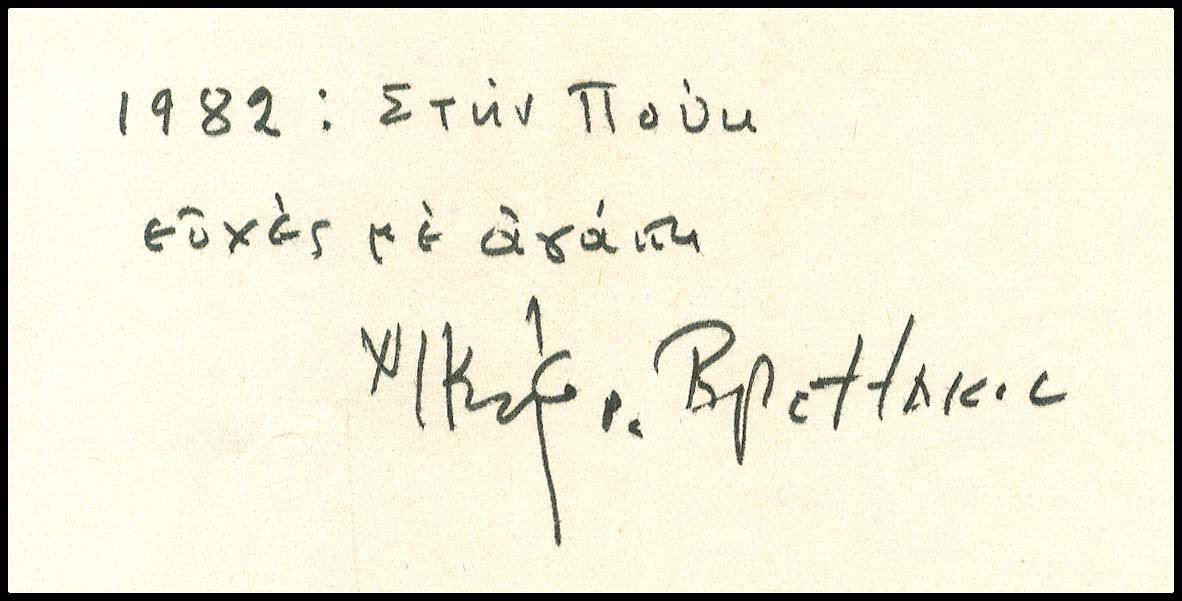 1982: Στὴν Πούη
εὐχὲς μὲ ἀγάπη
Νικηφ. Βρεττάκος